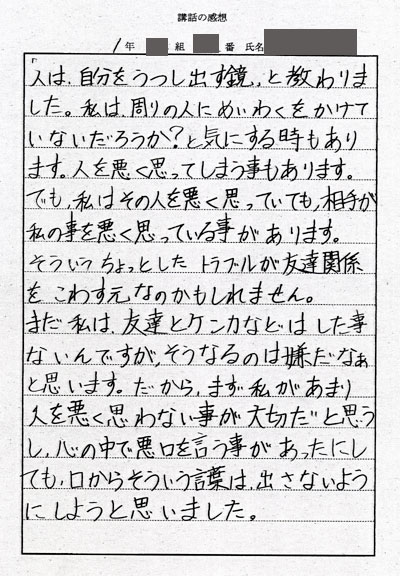 講話の感想
1年 組 番 氏名
「人は、自分をうつし出す鏡」と教わりま
した。私は、周りの人にめいわくをかけて
いないだろうか?と気にする時もあり
ます。人を悪く思ってしまう事もあります。
でも、私はその人を悪く思っていても、相手が
私の事を悪く思っている事があります。
そういうちょっとしたトラブルが友達関係
をこわす元なのかもしれません。
まだ私は、友達とケンカなどはした事
ないんですが、そうなるのは嫌だなぁ
と思います。だから、まず私があまり
人を悪く思わない事が大切だと思う
し、心の中で悪口を言う事があったにし
ても、口からそういう言葉は、出さないよう
にしようと思いました。